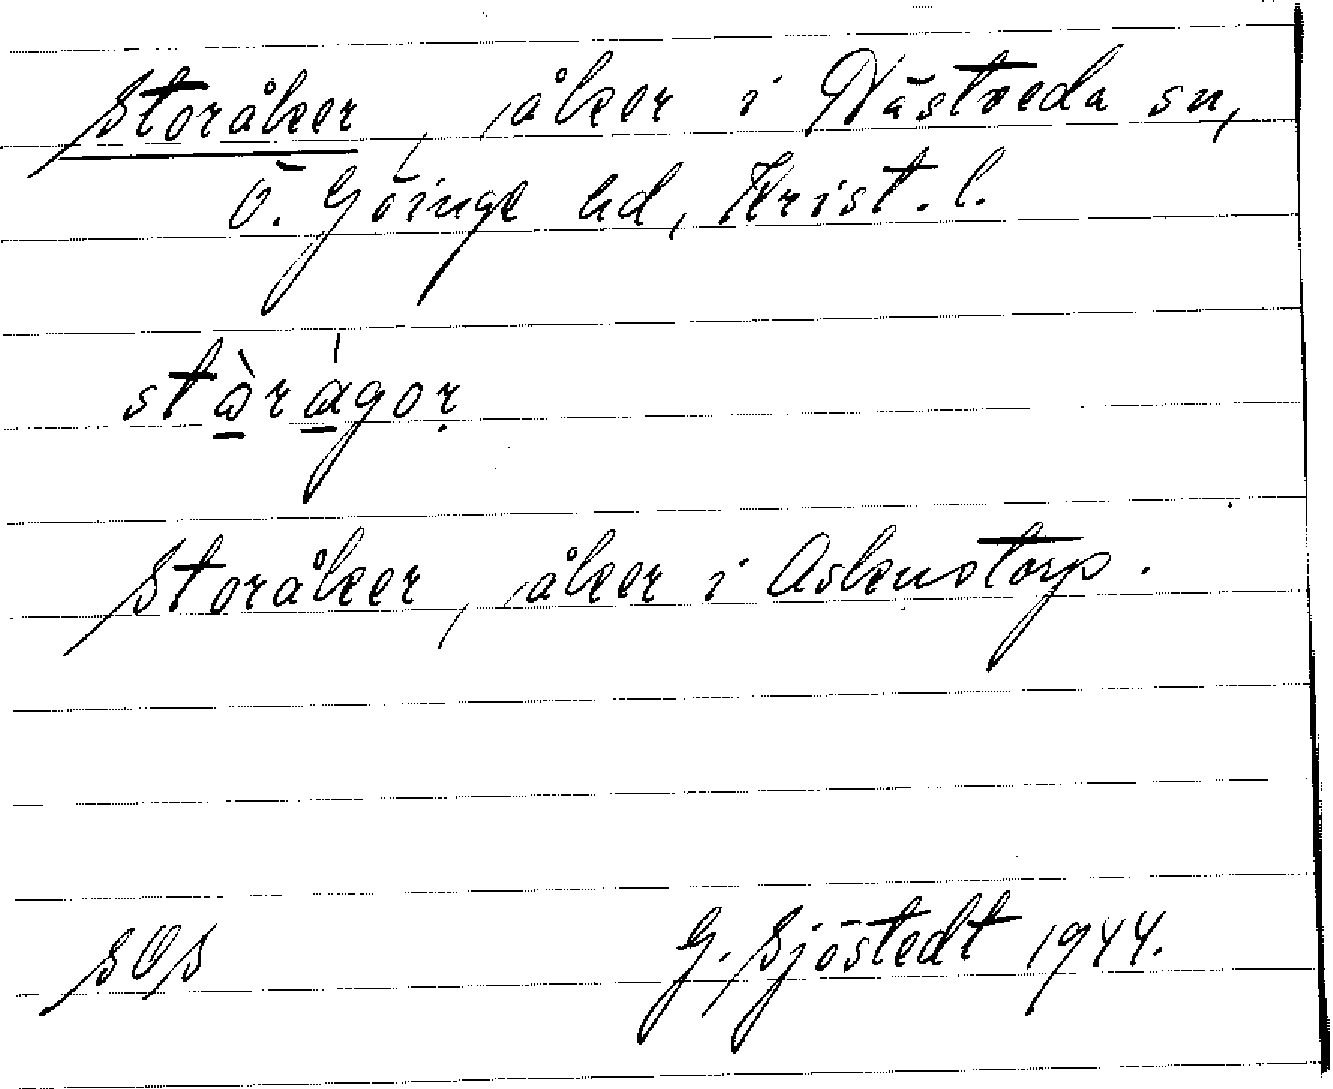 Storåker, åker i Nästveda sn,
Ö. Göinge hd, Krist. l.
stàrágor
Storåker, åker i Askenstorp.
SOS G. Sjöstedt 1944.